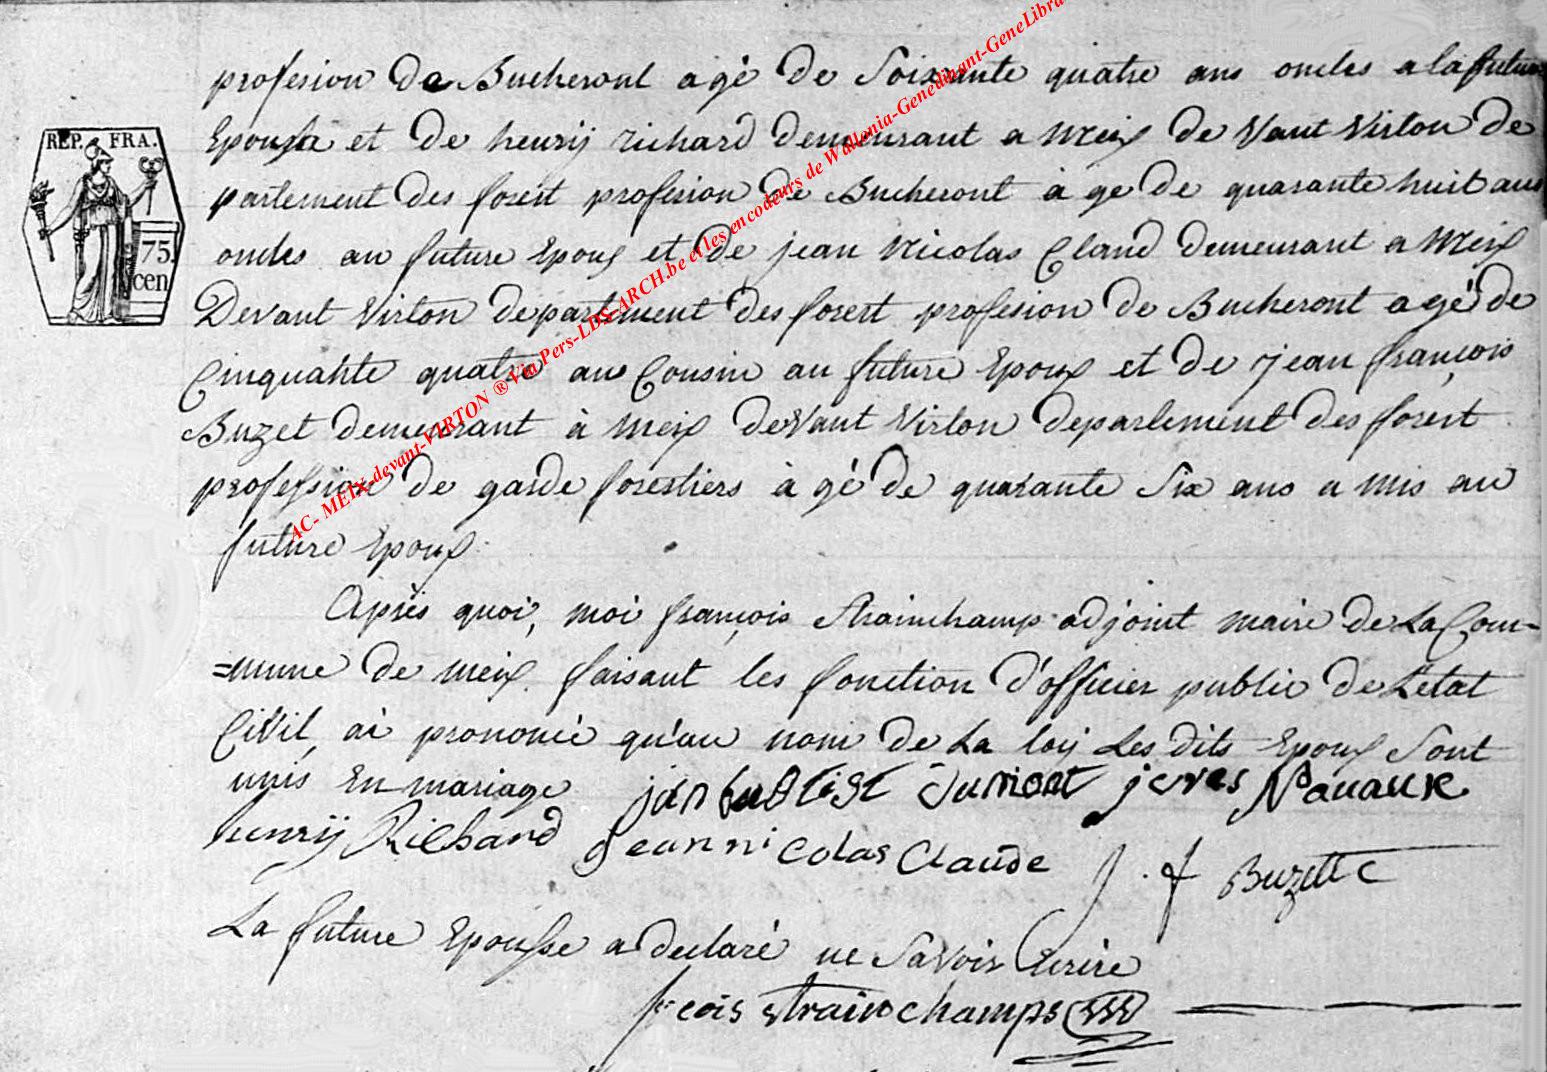 profesion de Bucheront agé de Soixante quatre ans oncles a la future
Epouse et de henrij richard demeurant a Meix de Vant Virton de
partement des forest profesion de Bucheront à ge de quarante huit ans
oncles au future Epoux et de jean Nicolas Claud demeurant a Meix
Devant Virton departement des forest profesion de Bucheront agé de
Cinquante quatre ans Cousin au future Epoux et de jean françois
Buzet demeurant à Meix deVant Virton departement des forest
profession de garde forestiers à gé de quarante Six ans a mis au
future Epoux
Après quoi, moi françois Strainchamp adjoint maire de La Com-
=mune de Meix faisant les fonction d'officier public de L'etat
Civil, ai prononcé qu'au nom de La loij Les dits Epoux Sont
unis En mariage
jan batist dumont
henrij Richard Jean nicolas Claude J. f Buzette
La future Epousse a declaré ne Savoir Ecrire
f:cois strainchamps
REP. FRA.
75.
cen
AC- MEIX-devant-VIRTON ® Via Pers-LDS-ARCH.be et les encodeurs de Wallonia-Genedinant-GeneLibra